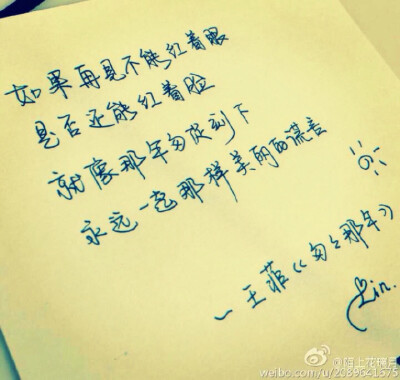 如果再见不能红着眼
是否还能红着脸
就像那年匆促刻下
永远一起那样美丽的谣言
—王菲《匆々那年》
Lin.
@陌上花穗
weibo.com/u/2089641575